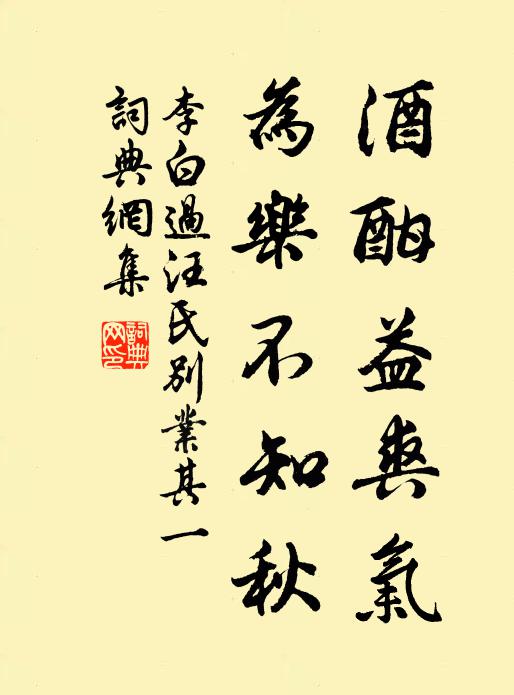 酒酣益爽氣
為樂不知秋
李白過汪氏別業其一
詞典網集
詞典网印